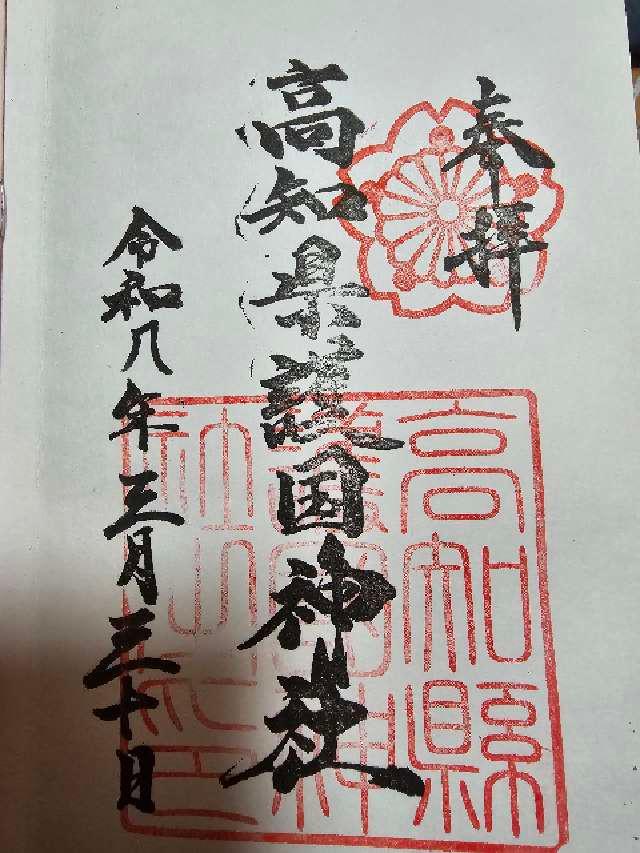 奉拝
高知県護国神社
令和八年三月三十日
高知縣
護國神
社之印